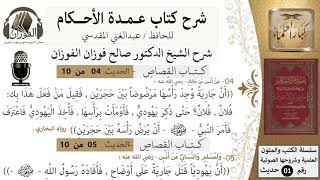 شرح كتاب عمدة الأحكام
للحافظ / عبدالغني المقدسي
شرح الشيخ الدكتور صالح فوزان الفوزان
كتاب القصاص - الحديث 04 من 10
04- عن أنس بن مالك - رضي الله عنه :
((أن جارية وجد رأسها مرضوضاً بين حجرين، فقيل من فعل هذا بك:
فلان، فلان؟ حتى ذكر يهودي، فأومأت برأسها، فأخذ اليهودي فاعترف،
فأمر النبي - ﷺ - أن يرض رأسه بين حجرين)) رواه البخاري.
كتاب القصاص - الحديث 05 من 10
05- ولمسلم والنسائي عن أنس - رضي الله عنه :
((أن يهودياً قتل جارية على أوضاح، فأقاده رسول الله - ﷺ - بها))
الفوزان
كبار العلماء
سلسلة الكتب والمتون
العلمية وشروحها الصوتية
رقم 01 حديث